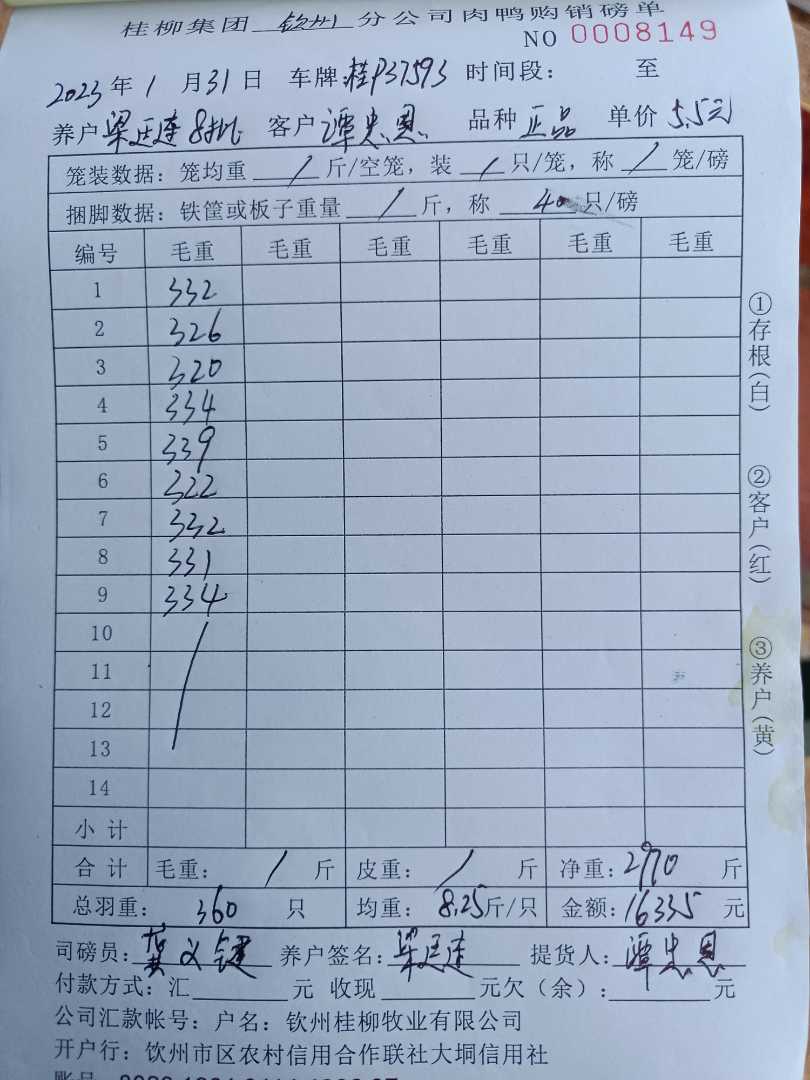 桂柳集团 钦州 分公司肉鸭购销磅单
NO 0008149
2023年1月31日 车牌:桂P37593 时间段: 至
养户梁廷连8批 客户谭忠恩 品种正品 单价5.5元
笼装数据: 笼均重 / 斤/空笼, 装 / 只/笼, 称 / 笼/磅
捆脚数据: 铁筐或板子重量 / 斤, 称 40 只/磅
编号 毛重 毛重 毛重 毛重 毛重 毛重
1 332
2 326
3 320
4 334
5 339
6 322
7 332
8 331
9 334
10
11
12
13
14
小计
合计 毛重: / 斤 皮重: / 斤 净重: 2970 斤
总羽重: 360 只 均重: 8.25斤/只 金额: 16335 元
司磅员: 龚义键 养户签名: 梁廷连 提货人: 谭忠恩
付款方式: 汇 元 收现 元欠(余): 元
公司汇款帐号: 户名: 钦州桂柳牧业有限公司
开户行: 饮州市区农村信用合作联社大垌信用社
账号
①存根(白)
②客户(红)
③养户(黄)